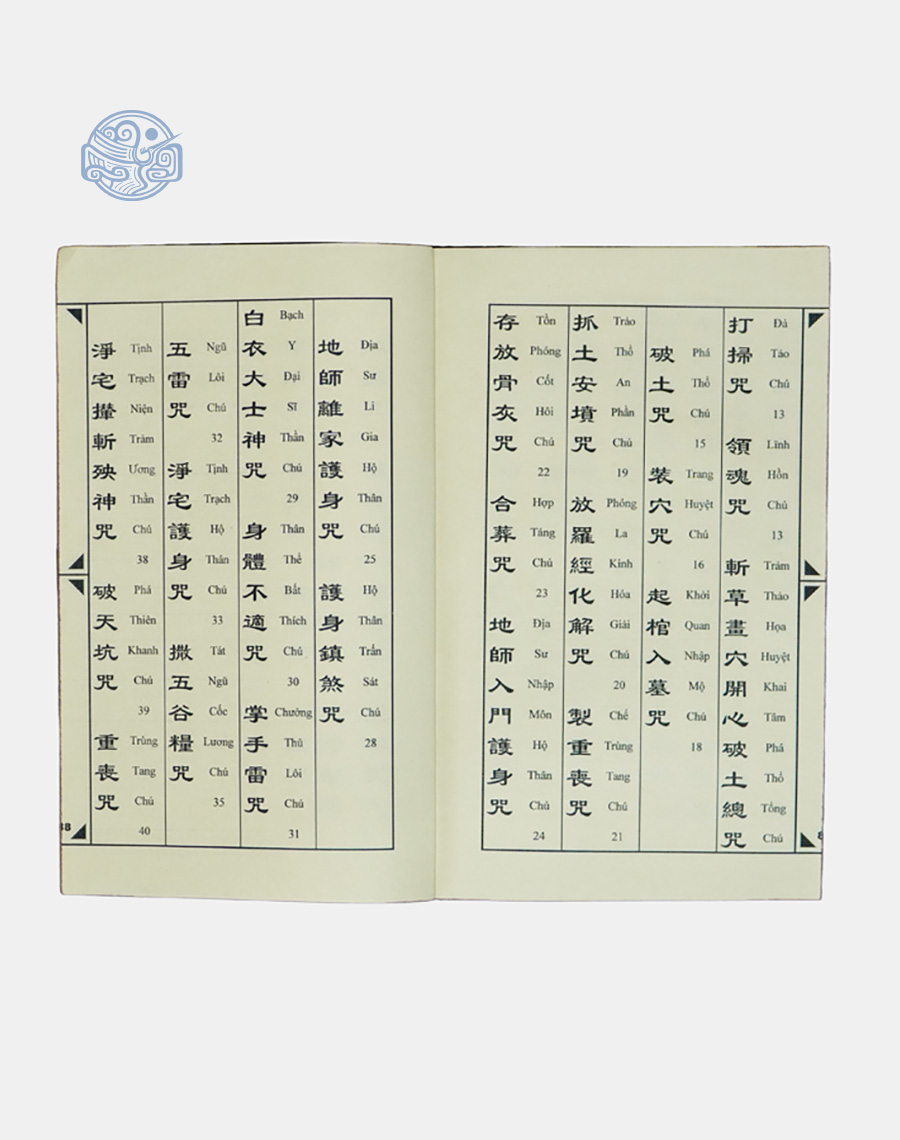 打掃咒 領魂咒 斬草畫穴開心破土總咒
Đả Tảo Chú 13 Lĩnh Hồn Chú 13 Trảm Thảo Họa Huyệt Khai Tâm Phá Thổ Tổng Chú
破土咒 裝穴咒 起棺入墓咒
Phá Thổ Chú 15 Trang Huyệt Chú 16 Khởi Quan Nhập Mộ Chú 18
抓土安墳咒 放羅經化解咒 製重喪咒
Trảo Thổ An Phần Chú 19 Phóng La Kinh Hóa Giải Chú 20 Chế Trùng Tang Chú 21
存放骨灰咒 合葬咒 地師入門護身咒
Tồn Phóng Cốt Hôi Chú 22 Hợp Táng Chú 23 Địa Sư Nhập Môn Hộ Thân Chú 24
地師離家護身咒 護身鎮煞咒
Địa Sư Li Gia Hộ Thân Chú 25 Hộ Thân Trấn Sát Chú 28
白衣大士神咒 身體不適咒 掌手雷咒
Bạch Y Đại Sĩ Thần Chú 29 Thân Thể Bất Thích Chú 30 Chưởng Thủ Lôi Chú 31
五雷咒 淨宅護身咒 撒五谷糧咒
Ngũ Lôi Chú 32 Tịnh Trạch Hộ Thân Chú 33 Tát Ngũ Cốc Lương Chú 35
淨宅攆斬殃神咒 破天坑咒 重喪咒
Tịnh Trạch Niện Trảm Ương Thần Chú 38 Phá Thiên Khanh Chú 39 Trùng Tang Chú 40